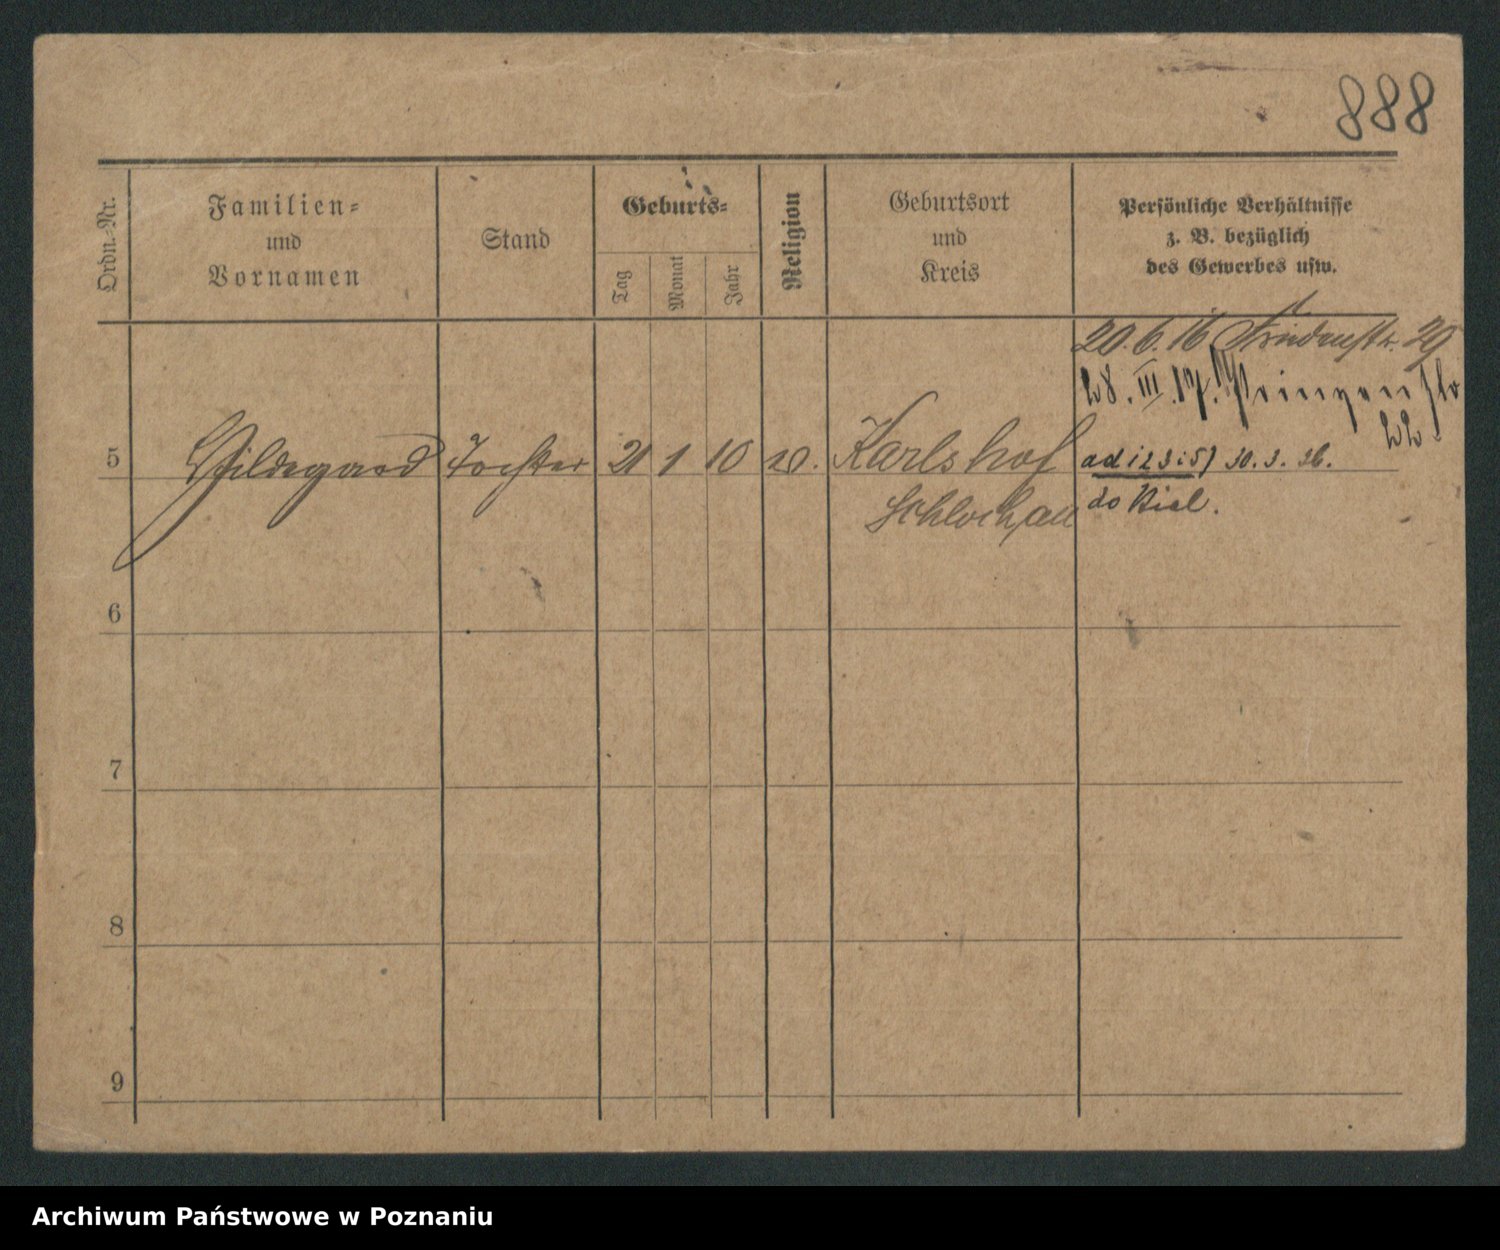 888
Ordn.-Nr.
Familien-
und
Vornamen
Stand
Geburts-
Tag
Monat
Jahr
Religion
Geburtsort
und
Kreis
Persönliche Verhältnisse
z. B. bezüglich
des Gewerbes usw.
20.6.16 Friedenstr. 29
28. III. 17. Prinzenstr
22.
5 Hildegard Tochter 21 1 10 Karlshof
Schlochau
30. 3. 26.
do Kiel.
6
7
8
9
Archiwum Państwowe w Poznaniu